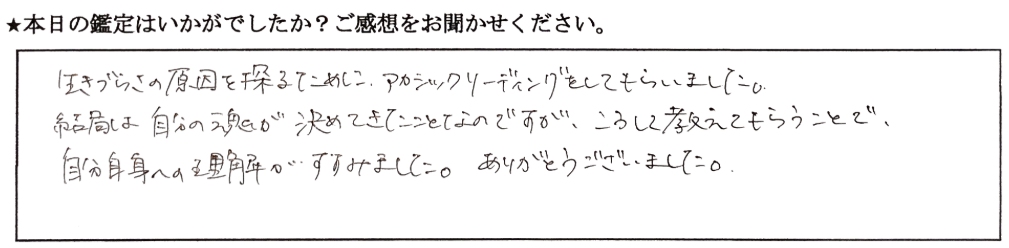 ★本日の鑑定はいかがでしたか？ご感想をお聞かせください。
生きづらさの原因を探るために、アカシックリーディングをしてもらいました。
結局は自分の魂が決めてきたことなのですが、こうして教えてもらうことで、
自分自身への理解がすすみました。ありがとうございました。